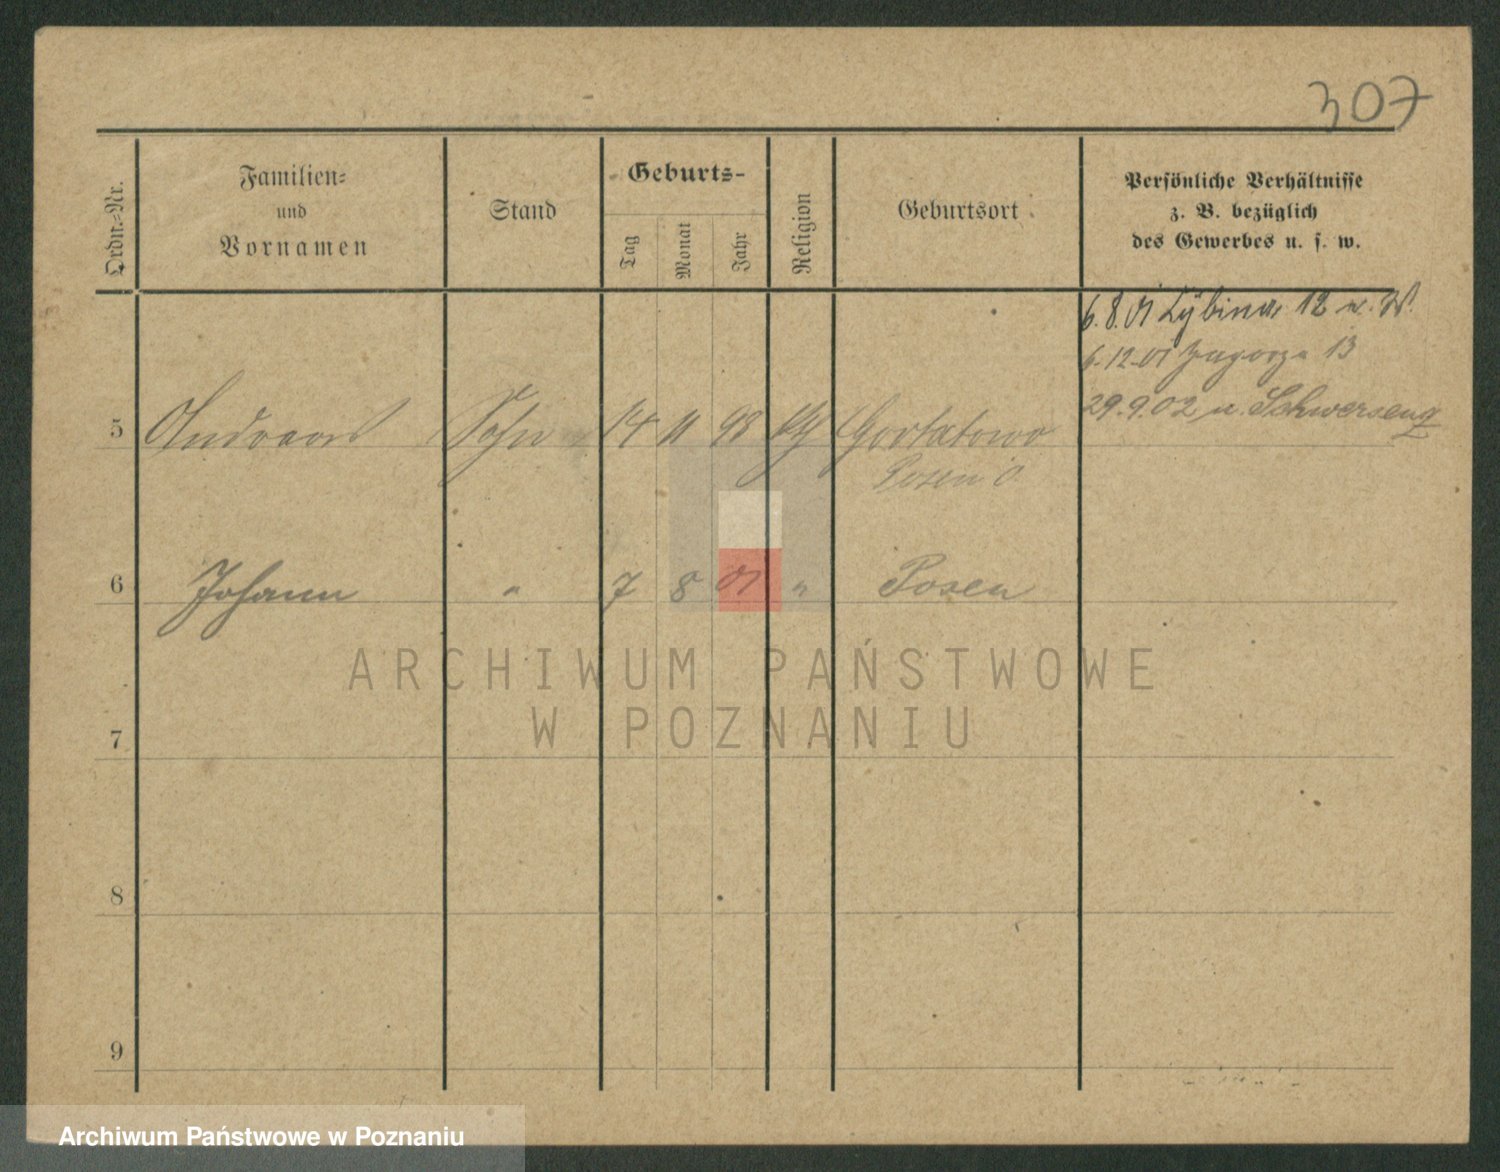 307
Ordn.-Nr.
Familien-
und
Vornamen
Stand
Geburts-
Tag
Monat
Jahr
Religion
Geburtsort
Persönliche Verhältnisse
z. B. bezüglich
des Gewerbes u. s. w.
6.8.01 Lybina 12 w.
6-12-01 Zagorze 13
29.9.02 n. Schwersenz
5 Andreas Sohn 14 11 98 kth Gortatowo
Posen O.
6 Johann " 7 8 01 " Posen
ARCHIWUM PAŃSTWOWE
W POZNANIU
7
8
9
Archiwum Państwowe w Poznaniu